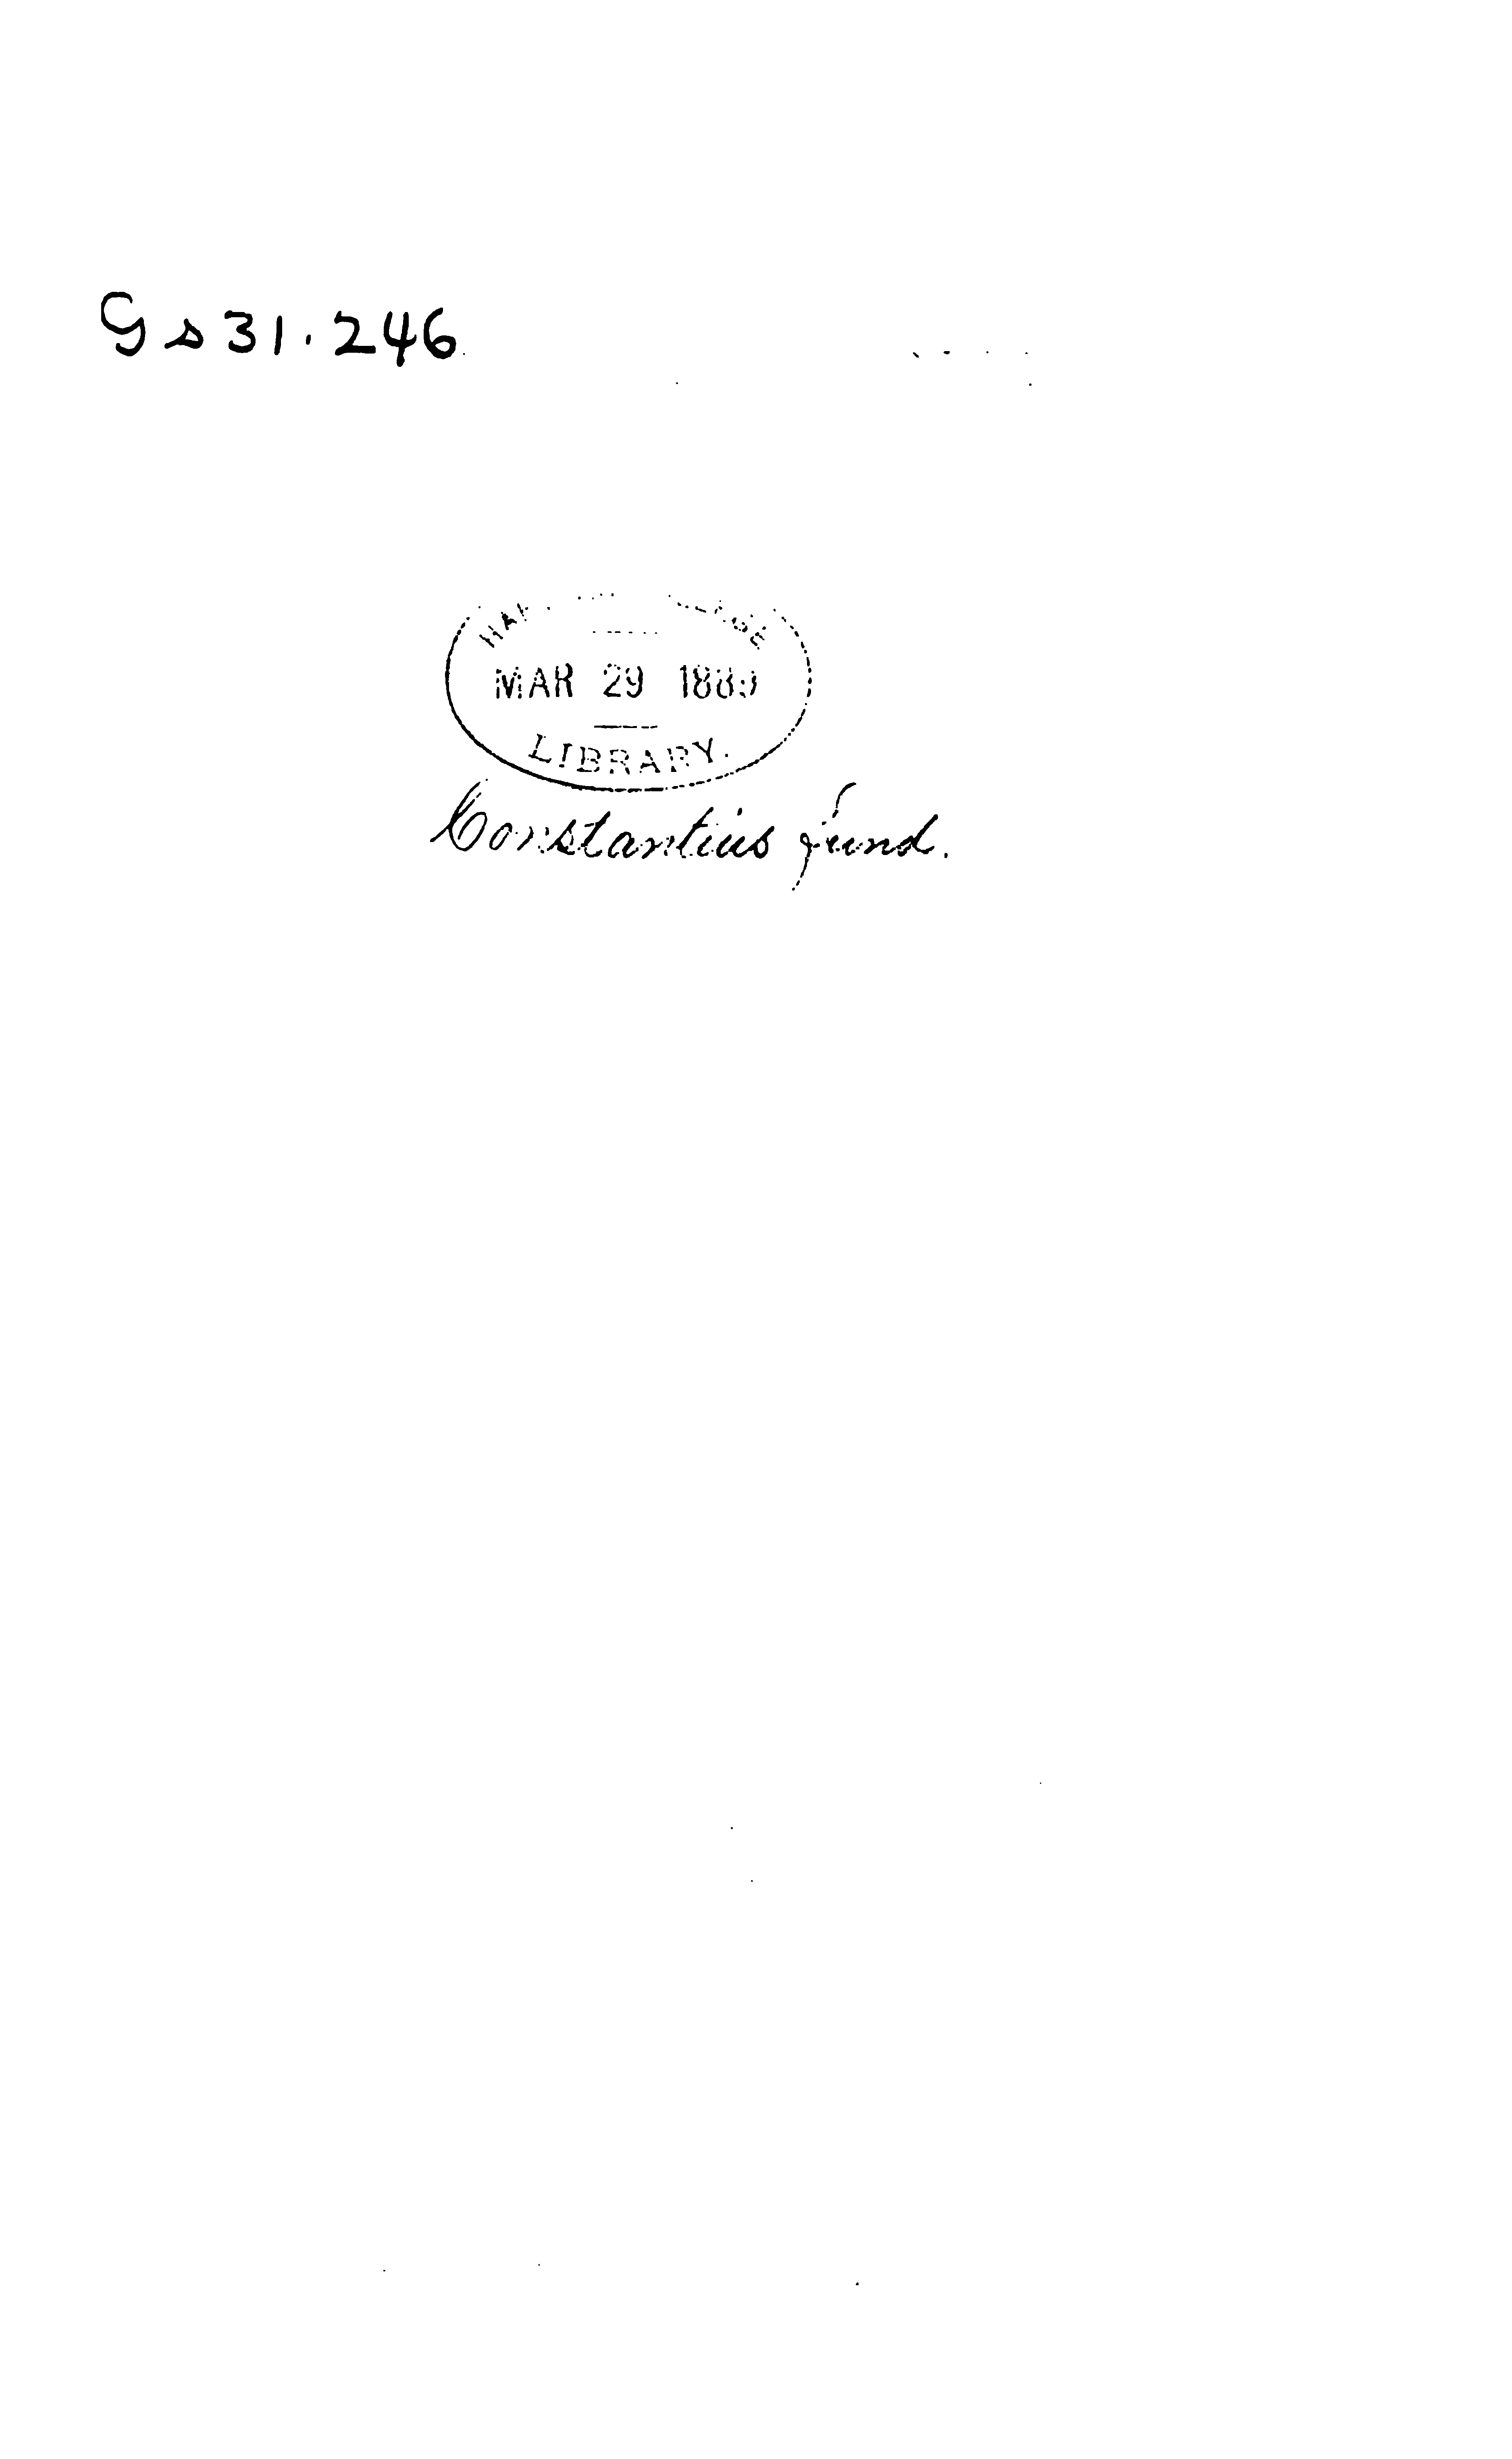 Gs31.246
MAR 29 1889
LIBRARY.
Constantius fund.